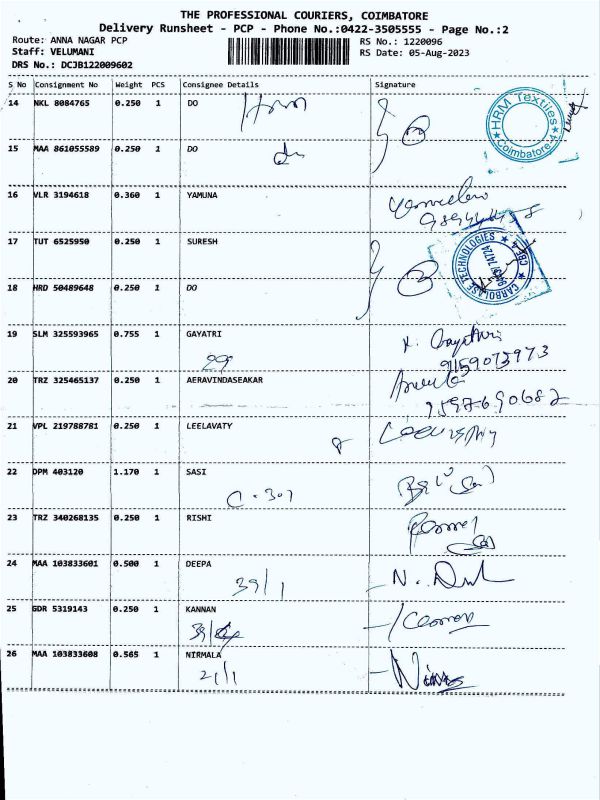 THE PROFESSIONAL COURIERS, COIMBATORE
Delivery Runsheet - PCP - Phone No.:0422-3505555 - Page No.:2
Route: ANNA NAGAR PCP RS No.: 1220096
Staff: VELUMANI RS Date: 05-Aug-2023
DRS No.: DCJB122009602
S No Consignment No Weight PCS Consignee Details Signature
14 NKL 8084765 0.250 1 DO
HRM Textiles
Coimbatore-4
15 MAA 861055589 0.250 1 DO
16 VLR 3194618 0.360 1 YAMUNA
17 TUT 6525950 0.250 1 SURESH
CARBOLASE TECHNOLOGIES
18 HRD 50489648 0.250 1 DO
19 SLM 325593965 0.755 1 GAYATRI
29 9159073973
20 TRZ 325465137 0.250 1 AERAVINDASEAKAR
9597690682
21 VPL 219788781 0.250 1 LEELAVATY
22 DPM 403120 1.170 1 SASI
C-301
23 TRZ 340268135 0.250 1 RISHI
24 MAA 103833601 0.500 1 DEEPA
39/1
25 GDR 5319143 0.250 1 KANNAN
26 MAA 103833608 0.565 1 NIRMALA
21/1